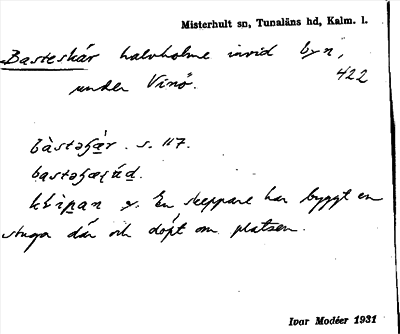 Misterhult sn, Tunaläns hd, Kalm. l.
Basteskär halvholme invid byn,
under Vinö.
422
s. 117.
En skeppare har byggt en
stuga där och döpt om platsen.
Ivar Modéer 1931